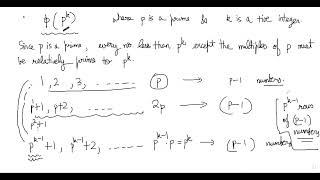 ϕ(p^k) where p is a prime & k is a +ive integer.
Since p is a prime, every no. less than p^k except the multiples of p must
be relatively prime to p^k.
1, 2, 3, ...... p → p-1 numbers.
p+1, p+2, ...... 2p → (p-1)
p²+1
p^(k-1)+1, p^(k-1)+2, ...... p^(k-1)·p = p^k → (p-1) numbers
p^(k-1) rows
of (p-1)
numbers